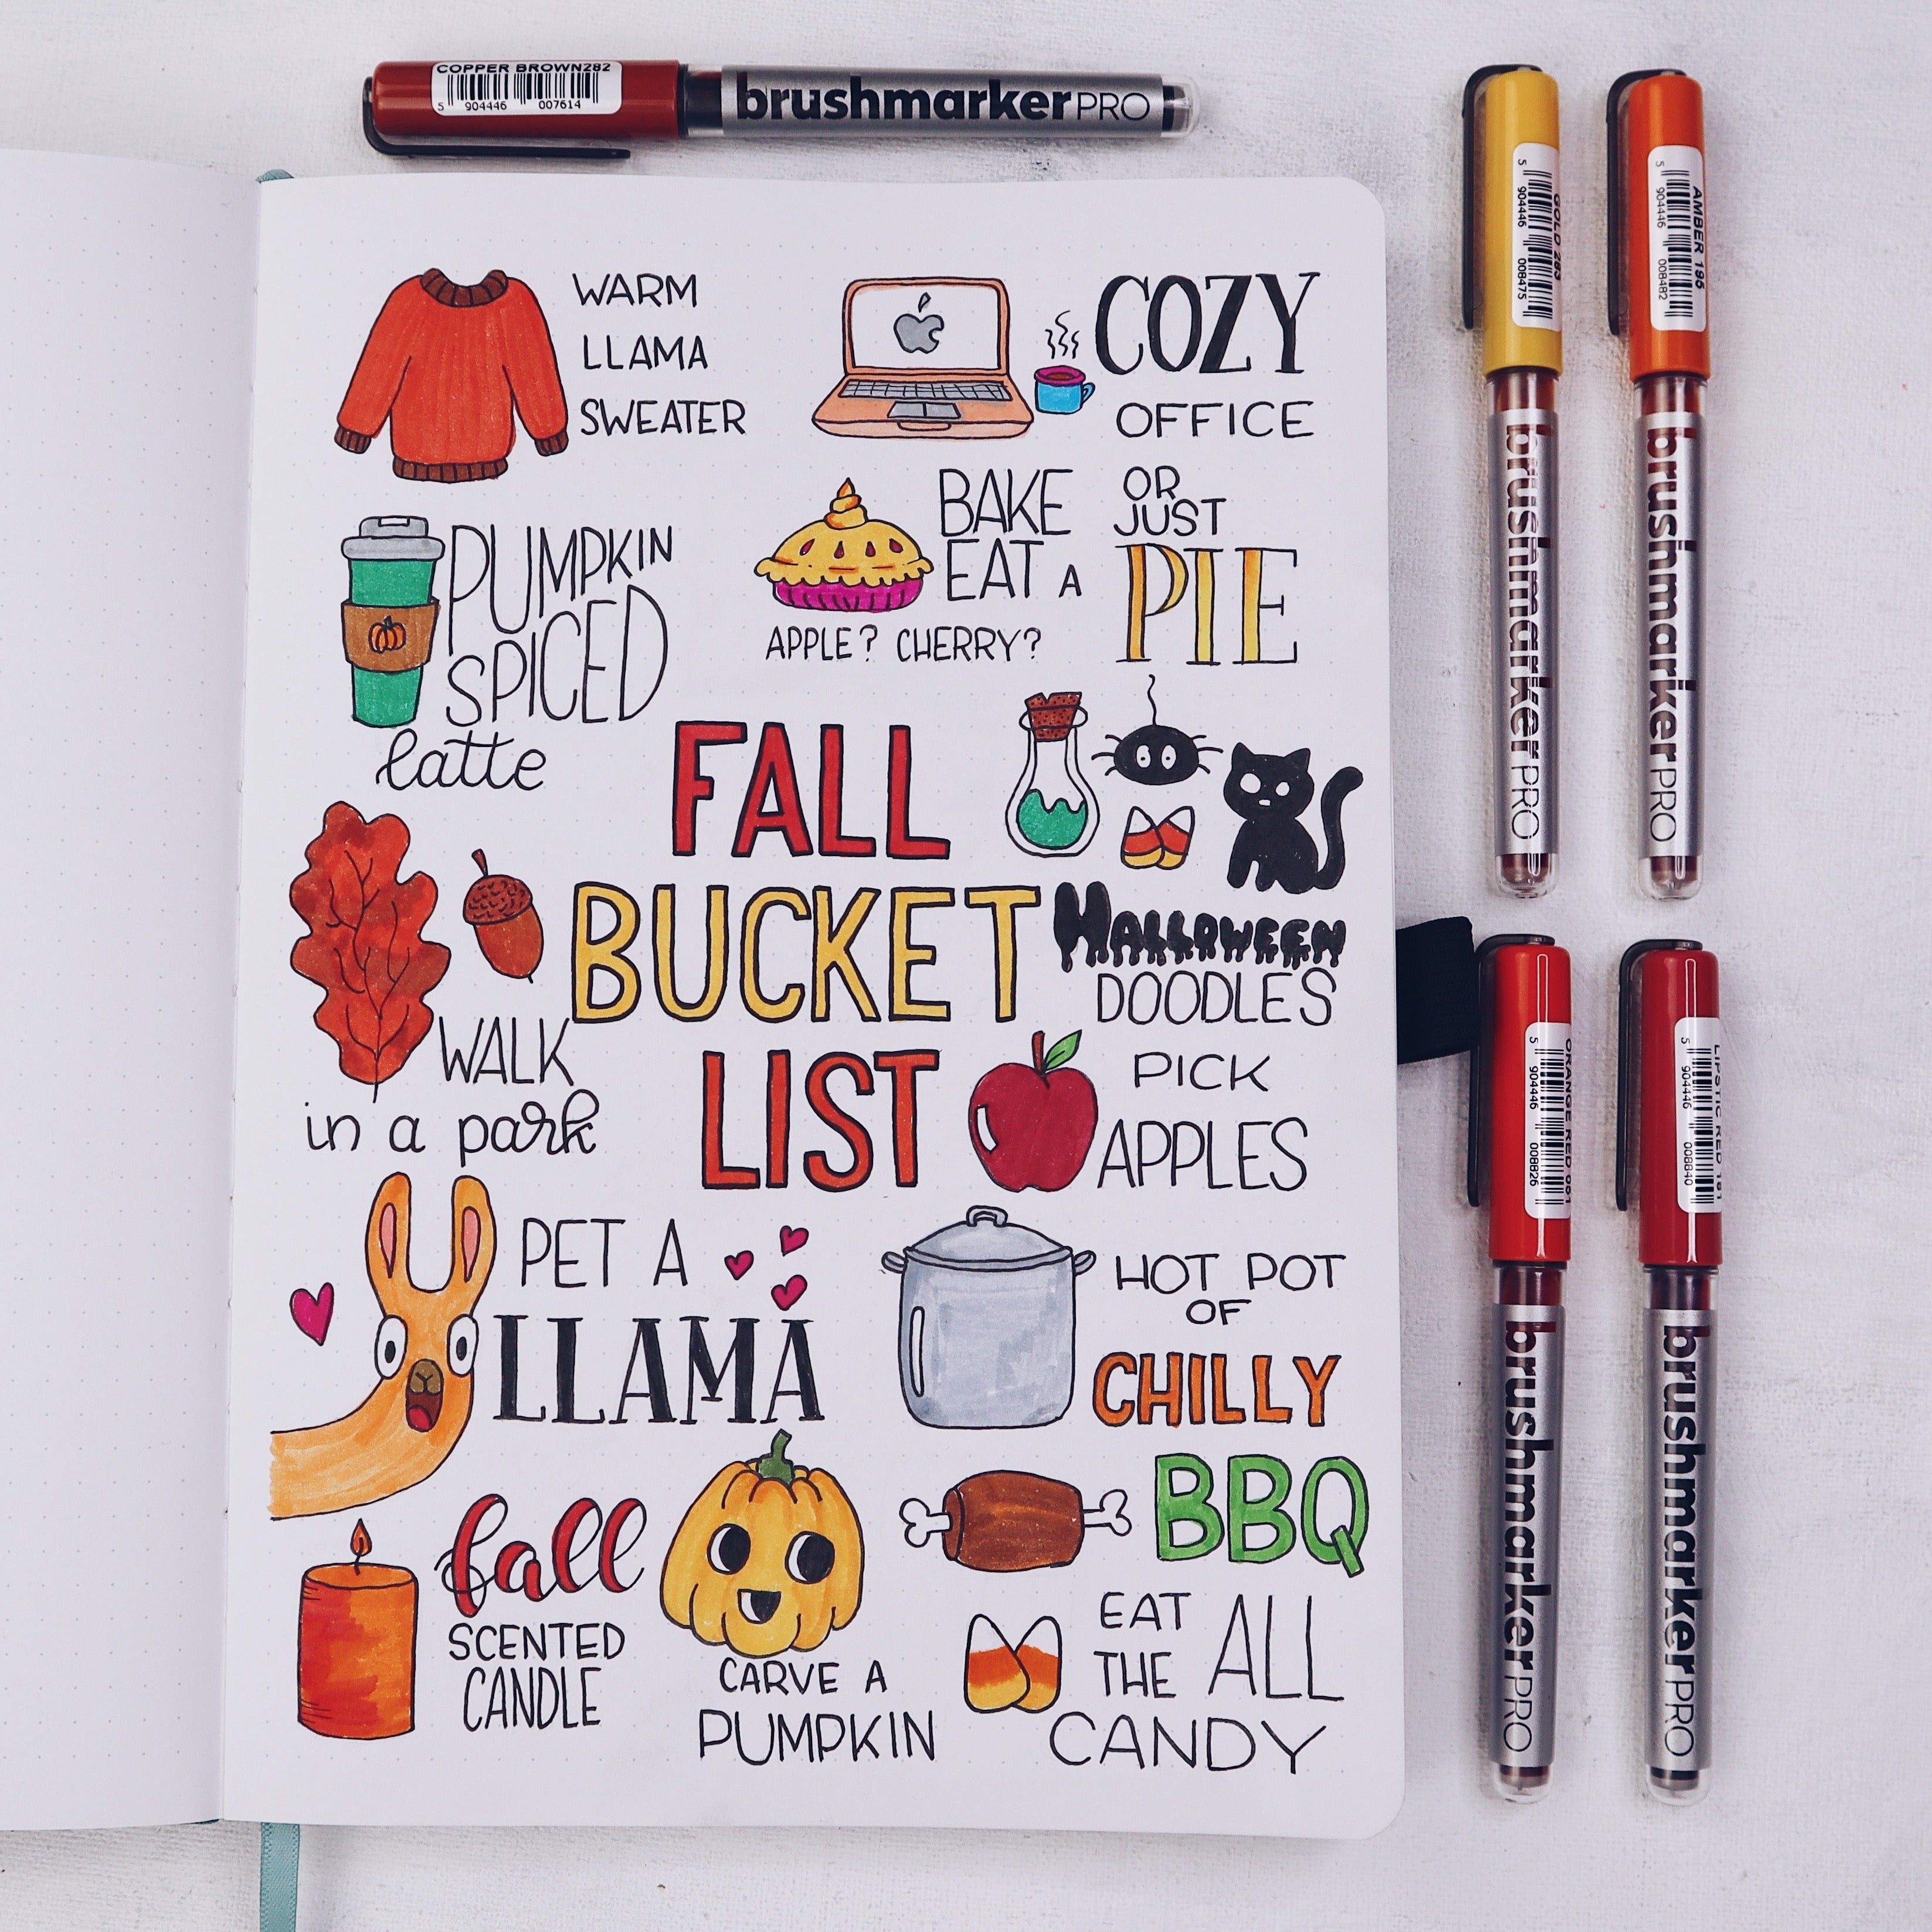 COPPER BROWN282
5 904446 007614
brushmarkerPRO
WARM
LLAMA
SWEATER
COZY
OFFICE
PUMPKIN
SPICED
latte
BAKE
OR
JUST
EAT A
PIE
APPLE? CHERRY?
FALL
BUCKET
LIST
HALLOWEEN
DOODLES
WALK
in a park
PICK
APPLES
PET A
LLAMA
HOT POT
OF
CHILLY
BBQ
fall
SCENTED
CANDLE
CARVE A
PUMPKIN
EAT
THE ALL
CANDY
GOLD 283
5 904446 008475
brushmarkerPRO
AMBER 195
5 904446 008482
brushmarkerPRO
ORANGE RED 061
5 904446 008826
brushmarkerPRO
LIPSTIC RED 181
5 904446 008840
brushmarkerPRO